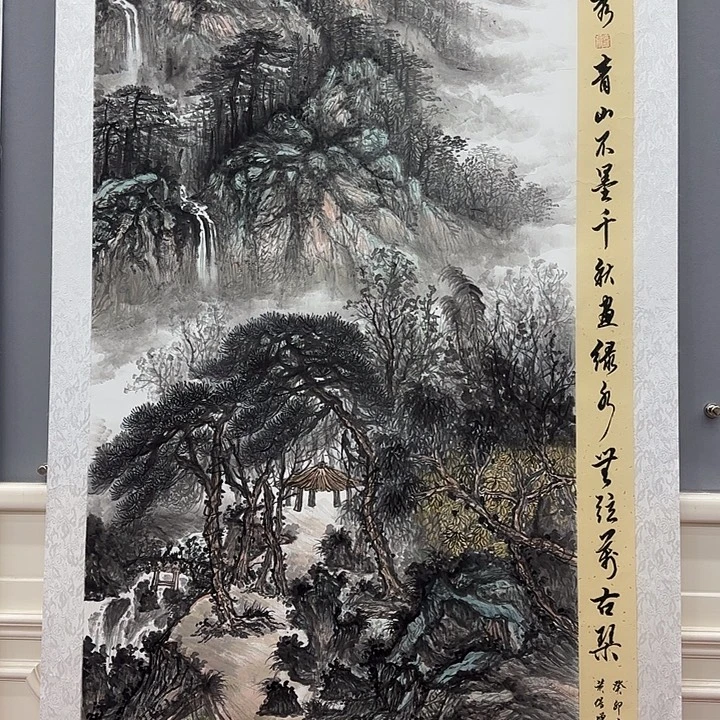 秀
青山不墨千秋画绿水无弦万古琴
癸卯